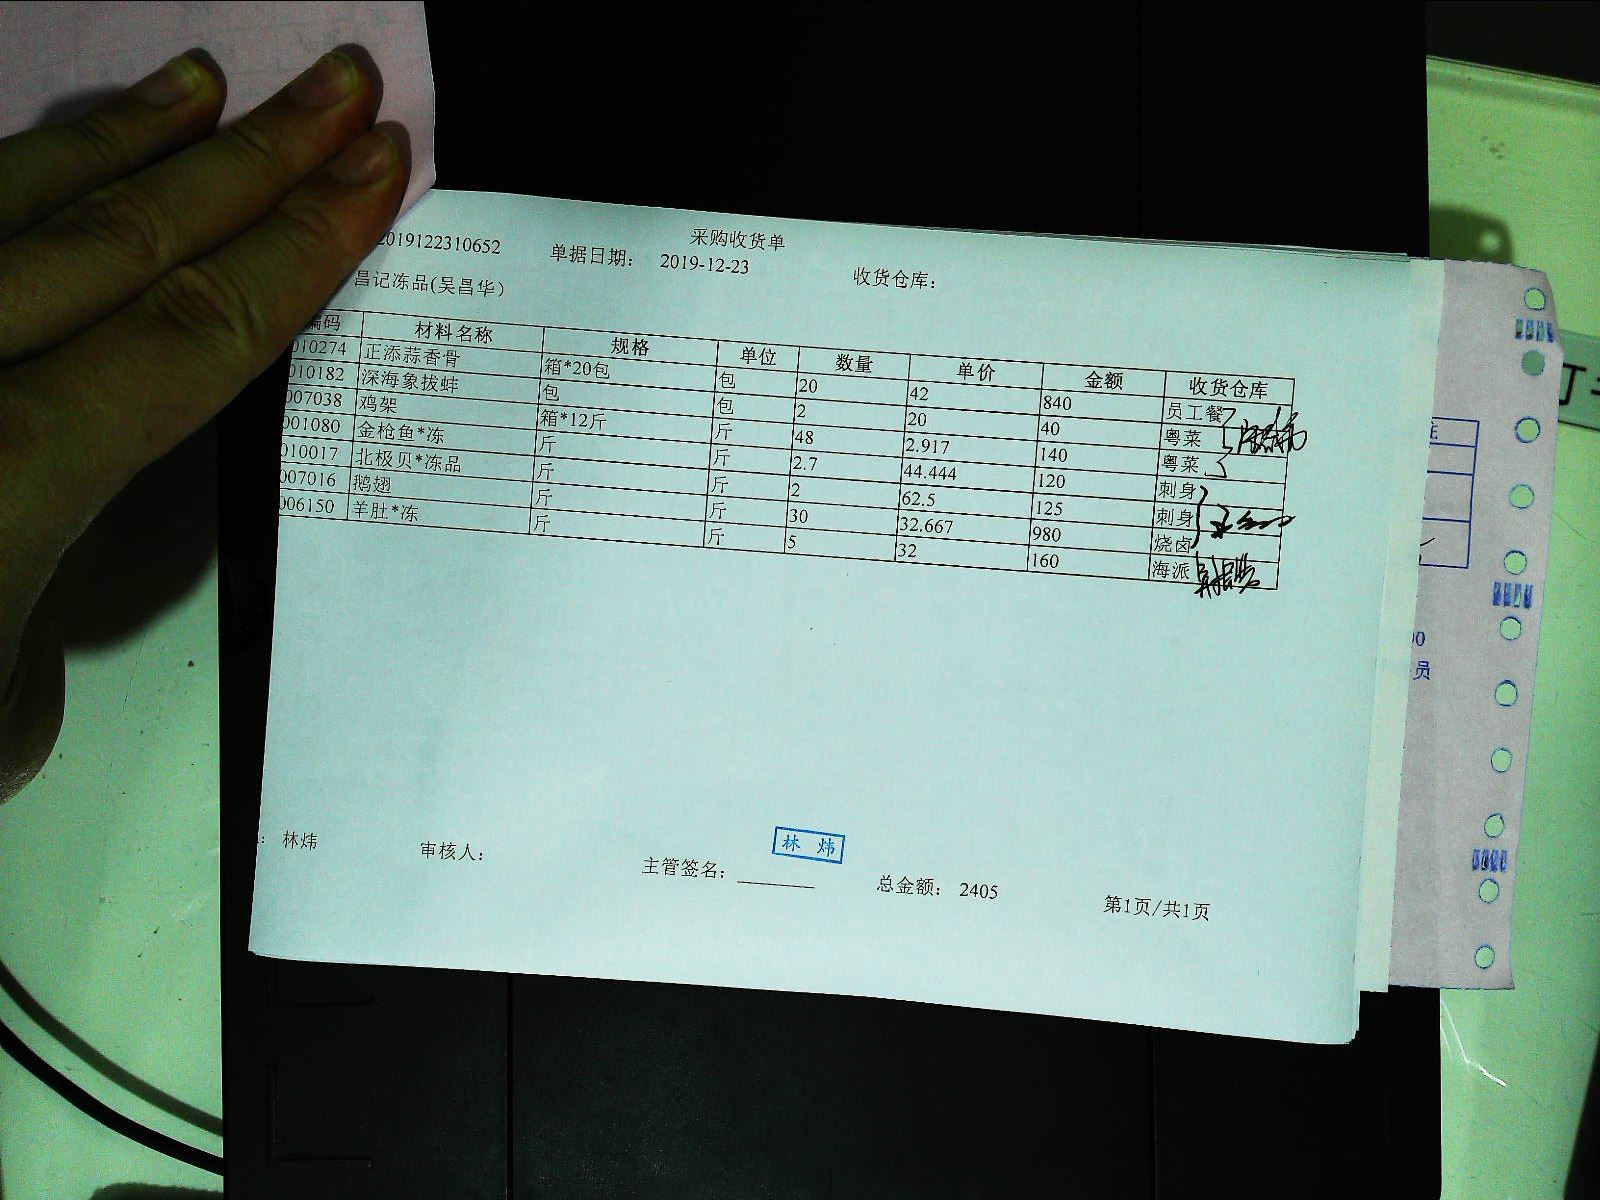 采购收货单
2019122310652 单据日期： 2019-12-23 收货仓库：
昌记冻品(吴昌华)
编码 材料名称 规格 单位 数量 单价 金额 收货仓库
010274 正添蒜香骨 箱*20包 包 20 42 840 员工餐
010182 深海象拔蚌 包 包 2 20 40 粤菜
007038 鸡架 箱*12斤 斤 48 2.917 140 粤菜
001080 金枪鱼*冻 斤 斤 2.7 44.444 120 刺身
010017 北极贝*冻品 斤 斤 2 62.5 125 刺身
007016 鹅翅 斤 斤 30 32.667 980 烧卤
006150 羊肚*冻 斤 斤 5 32 160 海派
： 林炜 审核人： 主管签名： 林 炜 总金额： 2405 第1页/共1页
员